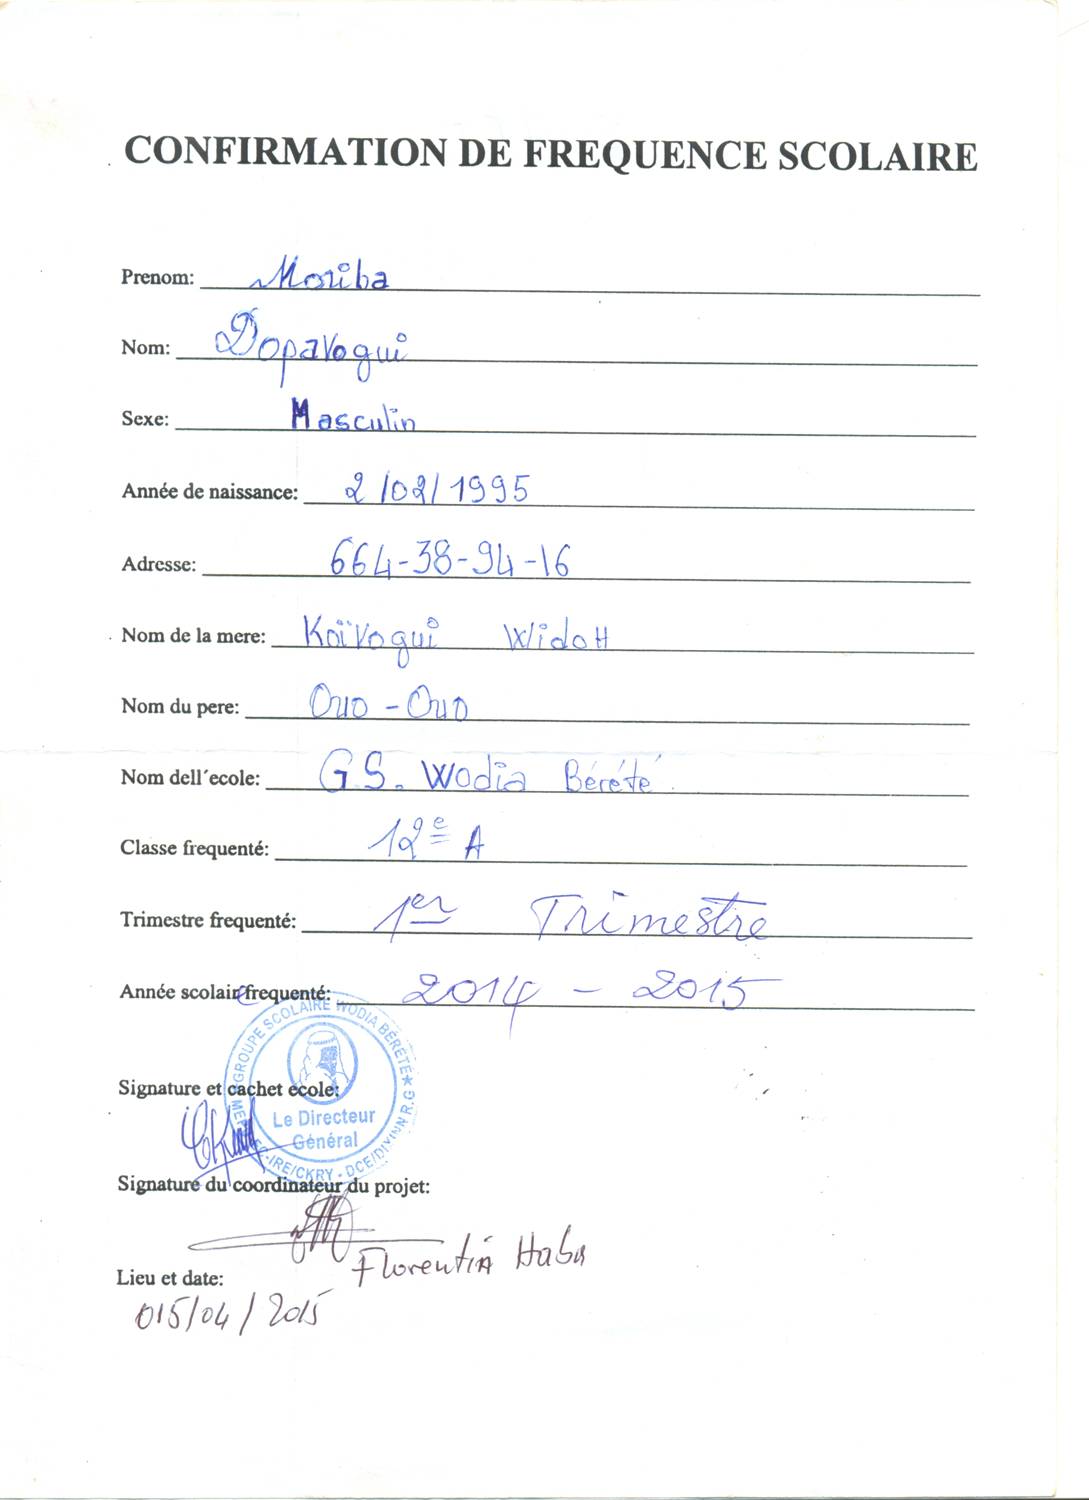 CONFIRMATION DE FREQUENCE SCOLAIRE
Prenom: Moriba
Nom: Dopavogui
Sexe: Masculin
Année de naissance: 2/02/1995
Adresse: 664-38-94-16
Nom de la mere: Koïvogui Widott
Nom du pere: Ouo-Ouo
Nom dell´ecole: G.S. Wodia Bérété
Classe frequenté: 12e A
Trimestre frequenté: 1er Trimestre
Année scolaire frequenté: 2014 - 2015
GROUPE SCOLAIRE WODIA BÉRÉTÉ★
Signature et cachet ecole:
Le Directeur
Général
IRE/CKRY - DCE/DIXINN R.G
Signature du coordinateur du projet:
Florentin Haba
Lieu et date:
015/04/2015